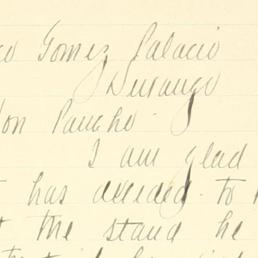 co Gomez Palacio
Durango
Don Pancho.
I am glad
t has decided to
t the stand he